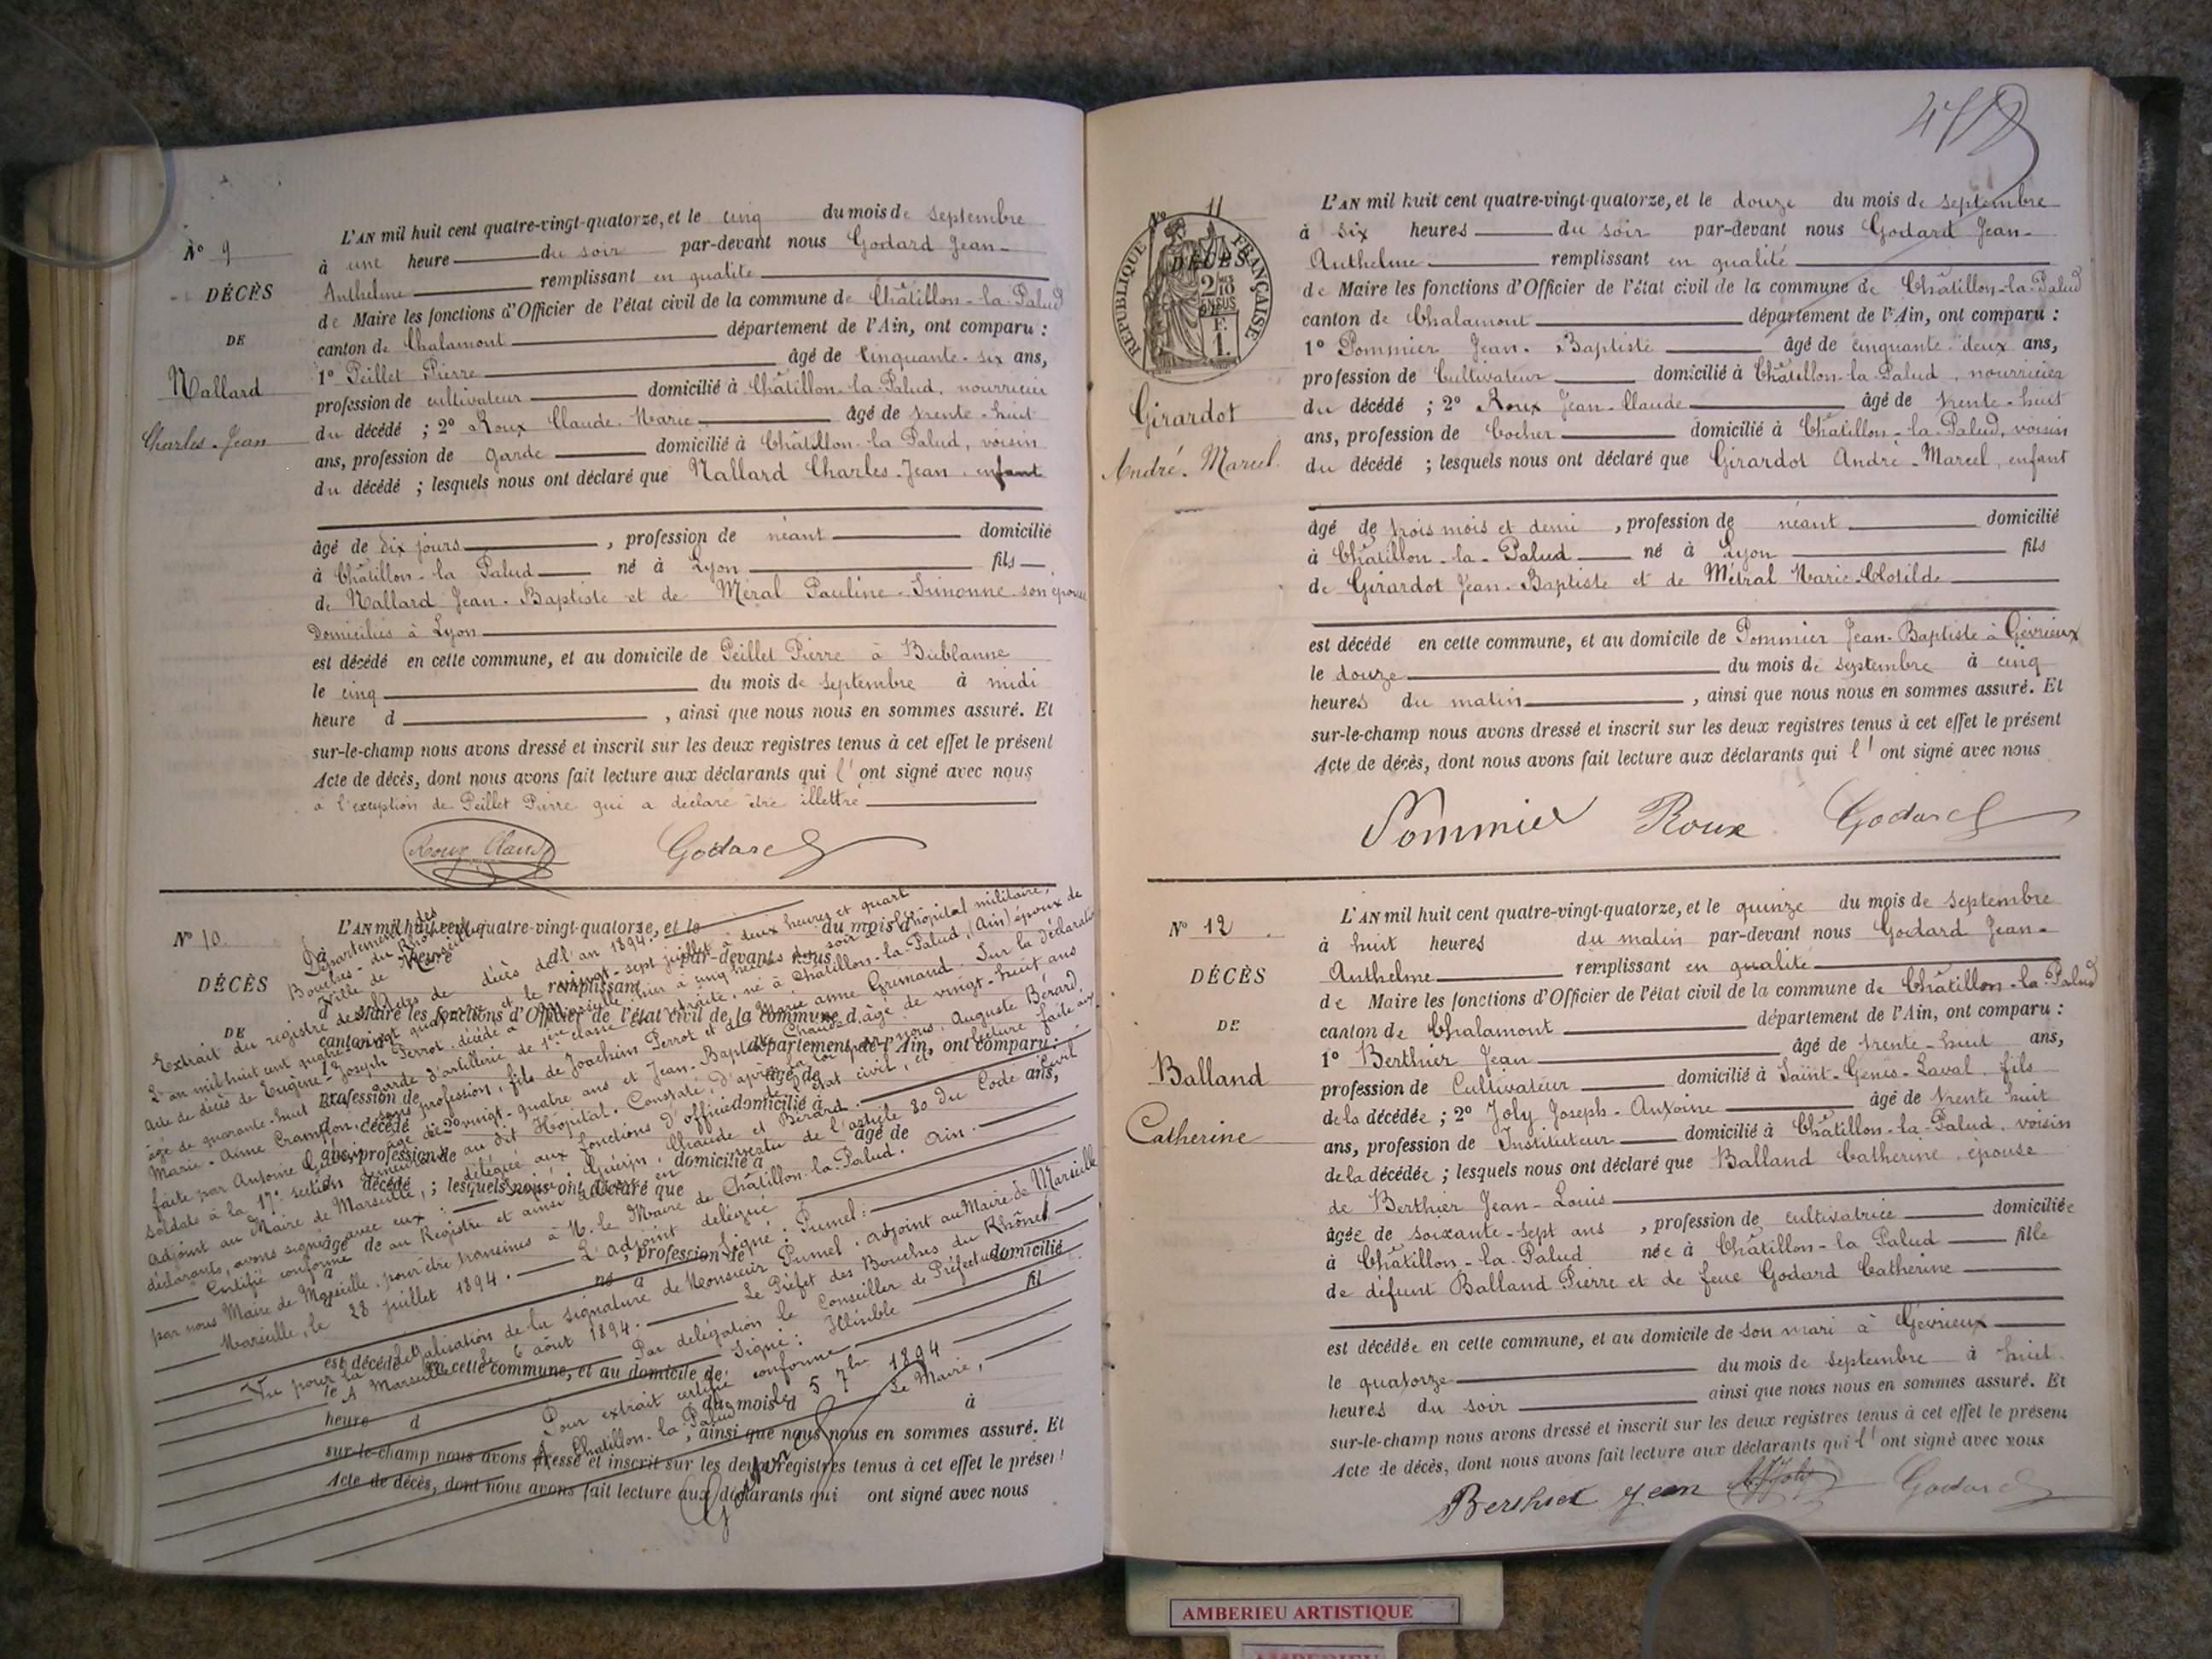 Nº 9
DÉCÈS
DE
Nallard
Charles-Jean
L'AN mil huit cent quatre-vingt-quatorze, et le cinq du mois de septembre
à une heure du soir par-devant nous Godard Jean-
Anthelme remplissant en qualité
de Maire les fonctions d'Officier de l'état civil de la commune de Châtillon-la-Palud
canton de Chalamont département de l'Ain, ont comparu :
1º Peillet Pierre âgé de cinquante-six ans,
profession de cultivateur domicilié à Châtillon-la-Palud, nourricier
du décédé ; 2º Roux Claude-Marie âgé de trente-huit
ans, profession de garde domicilié à Châtillon-la-Palud, voisin
du décédé ; lesquels nous ont déclaré que Nallard Charles-Jean, enfant
âgé de dix jours , profession de néant domicilié
à Châtillon-la-Palud né à Lyon fils
de Nallard Jean-Baptiste et de Méral Pauline-Simonne son épouse
Domiciliés à Lyon
est décédé en cette commune, et au domicile de Peillet Pierre à Bublanne
le cinq du mois de septembre à midi
heure d , ainsi que nous nous en sommes assuré. Et
sur-le-champ nous avons dressé et inscrit sur les deux registres tenus à cet effet le présent
Acte de décès, dont nous avons fait lecture aux déclarants qui l'ont signé avec nous
à l'exception de Peillet Pierre qui a déclaré être illettré
Roux Claude Godard
Nº 10.
DÉCÈS
DE
L'AN mil huit cent quatre-vingt-quatorze, et le du mois d
par-devant nous
remplissant
d Maire les fonctions d'Officier de l'état civil de la commune d
canton d département de l'Ain, ont comparu :
1º âgé de ans,
profession de domicilié à
décédé ; 2º âgé de
ans, profession de domicilié à
décédé ; lesquels nous ont déclaré que
âgé de , profession de domicilié
à né à fil
est décédé en cette commune, et au domicile de
le du mois d à
heure d , ainsi que nous nous en sommes assuré. Et
sur-le-champ nous avons dressé et inscrit sur les deux registres tenus à cet effet le présent
Acte de décès, dont nous avons fait lecture aux déclarants qui ont signé avec nous
Département des
Bouches-du-Rhône
Ville de Marseille
Extrait du registre des actes de décès de l'an 1894.
L'an mil huit cent quatre vingt quatorze et le vingt-sept juillet à deux heures et quart
acte de décès de Eugène-Joseph Perrot, décédé à Marseille, hier à cinq heures du soir à l'hôpital militaire,
âgé de quarante-huit ans, garde d'artillerie de 1ère classe en retraite, né à Chatillon-la-Palud, (Ain) époux de
Marie-Aimé sans profession, fils de Joachim Perrot et de Marie anne Grimand. Sur la déclaration
faite par Antoine Guérin, âgé de vingt-quatre ans et Jean-Baptiste Chaude, âgé de vingt-huit ans
soldats à la 17e section au dit Hôpital. Constaté d'après la loi par nous, Auguste Bérard,
adjoint au Maire de Marseille, délégué aux fonctions d'officier de l'état civil, et lecture faite aux
déclarants, avons signé avec eux : Signé: Guérin, Chaude et Bérard.
Certifié conforme au Registre et ainsi délivré en vertu de l'article 80 du Code civil
par nous Maire de Marseille, pour être transmis à M. le Maire de Châtillon-la-Palud. Ain.
Marseille, le 28 juillet 1894. L'adjoint délégué
Signé: Pumel:
Vu pour la légalisation de la signature de Monsieur Pumel, adjoint au Maire de Marseille
A Marseille le 6 août 1894. Le Préfet des Bouches du Rhône
Par délégation le Conseiller de Préfecture
Signé: Illisible
Pour extrait certifié conforme
A Chatillon-la-Palud le 5 7bre 1894
Le Maire,
Godard
Nº 11
RÉPUBLIQUE FRANÇAISE
DÉCÈS
DE
Girardot
André-Marcel
L'AN mil huit cent quatre-vingt-quatorze, et le douze du mois de septembre
à six heures du soir par-devant nous Godard Jean-
Anthelme remplissant en qualité
de Maire les fonctions d'Officier de l'état civil de la commune de Châtillon-la-Palud
canton de Chalamont département de l'Ain, ont comparu :
1º Pommier Jean-Baptiste âgé de cinquante-deux ans,
profession de Cultivateur domicilié à Châtillon-la-Palud, nourricier
du décédé ; 2º Roux Jean-Claude âgé de trente-huit
ans, profession de Cocher domicilié à Châtillon-la-Palud, voisin
du décédé ; lesquels nous ont déclaré que Girardot André-Marcel, enfant
âgé de trois mois et demi , profession de néant domicilié
à Châtillon-la-Palud né à Lyon fils
de Girardot Jean-Baptiste et de Métral Marie-Clotilde
est décédé en cette commune, et au domicile de Pommier Jean-Baptiste à Gévrieux
le douze du mois de septembre à cinq
heures du matin , ainsi que nous nous en sommes assuré. Et
sur-le-champ nous avons dressé et inscrit sur les deux registres tenus à cet effet le présent
Acte de décès, dont nous avons fait lecture aux déclarants qui l'ont signé avec nous
Pommier Roux Godard
Nº 12
DÉCÈS
DE
Balland
Catherine
L'AN mil huit cent quatre-vingt-quatorze, et le quinze du mois de septembre
à huit heures du matin par-devant nous Godard Jean-
Anthelme remplissant en qualité
de Maire les fonctions d'Officier de l'état civil de la commune de Châtillon-la-Palud
canton de Chalamont département de l'Ain, ont comparu :
1º Berthier Jean âgé de trente-huit ans,
profession de Cultivateur domicilié à Saint-Genis-Laval, fils
de la décédée ; 2º Joly Joseph-Antoine âgé de trente huit
ans, profession de Instituteur domicilié à Châtillon-la-Palud, voisin
de la décédée ; lesquels nous ont déclaré que Balland Catherine, épouse
de Berthier Jean-Louis
âgée de soixante-sept ans , profession de cultivatrice domiciliée
à Châtillon-la-Palud née à Châtillon-la Palud fille
de défunt Balland Pierre et de feue Godard Catherine
est décédée en cette commune, et au domicile de son mari à Gévrieux
le quatorze du mois de septembre à huit
heures du soir ainsi que nous nous en sommes assuré. Et
sur-le-champ nous avons dressé et inscrit sur les deux registres tenus à cet effet le présent
Acte de décès, dont nous avons fait lecture aux déclarants qui l'ont signé avec nous
Berthier Jean Joly Godard
AMBERIEU ARTISTIQUE